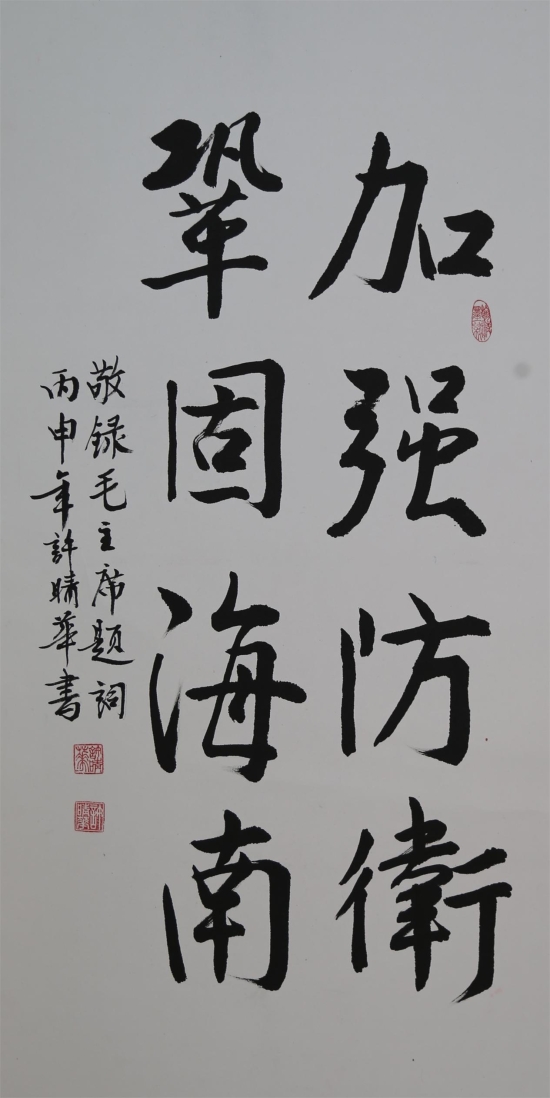 加强防衛
鞏固海南
敬録毛主席題詞
丙申年許晴華書